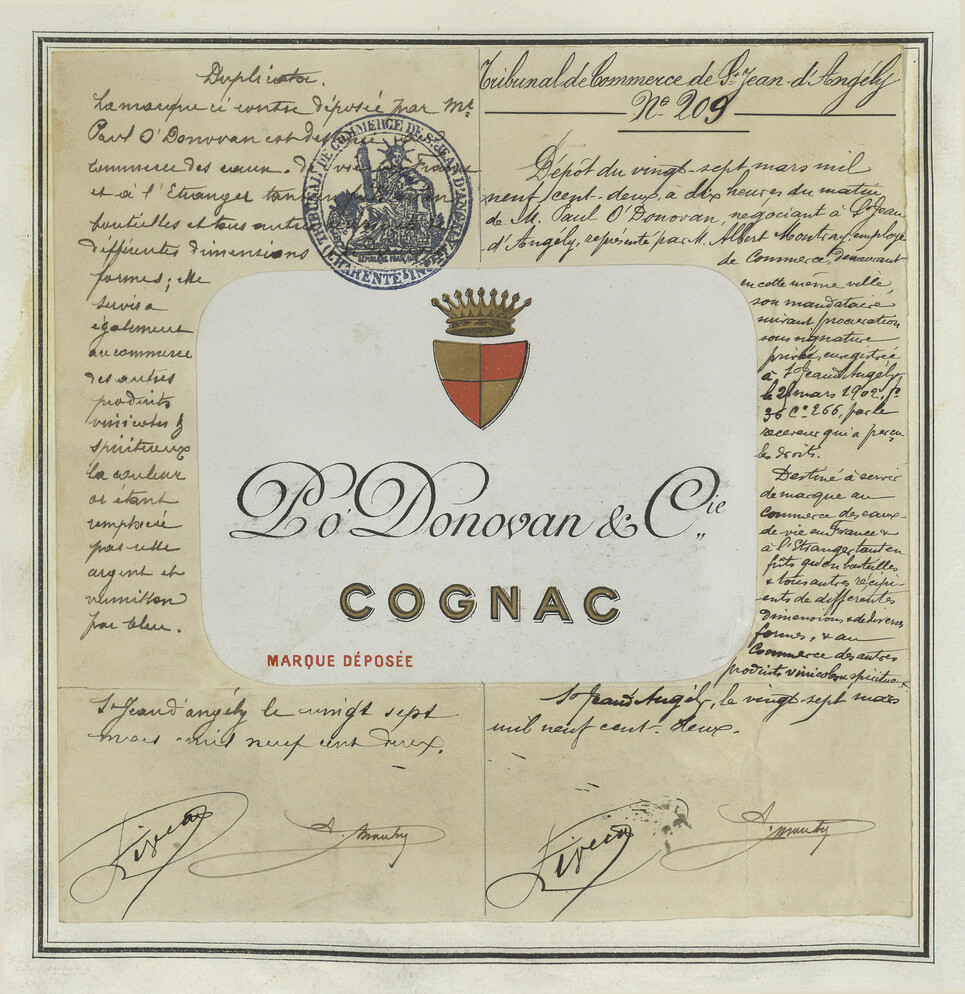 Duplicata.
La marque ci contre déposée par Mr
Paul O'Donovan est destinée
commerce des eaux-de-vie France
et à l'Etranger tant
bouteilles et tous autres
différentes dimensions
formes; elle
servira
également
au commerce
des autres
produits
vinicoles &
spiritueux
la couleur
or étant
remplacée
par celle
argent et
vermillon
par bleu.
St Jean d'angély le vingt sept
mars mil neuf cent deux.
TRIBUNAL DE COMMERCE DE ST JEAN D'ANGELY
CHARENTE INF
REPUBLIQUE FRANÇAISE
Tribunal de Commerce de St Jean-d'Angély
No. 209
Dépôt du vingt-sept mars mil
neuf cent-deux, à dix heures du matin
de M. Paul O'Donovan, négociant à St Jean
d'Angély, représenté par M. Albert employé
de Commerce, demeurant
en cette même ville,
son mandataire
suivant procuration
sous signature
privée, enregistrée
à St Jean d'Angély
le mars 1902, fo
36 Co 266, par le
receveur qui a perçu
les droits.
Destiné à servir
de marque au
Commerce des eaux-
de-vie en France &
à l'Etranger, tant en
fûts qu'en bouteilles
& tous autres récipi-
ents de différentes
dimensions & de diverses
formes, & au
Commerce des autres
produits vinicoles & spiritueux
St Jean d'Angély, le vingt-sept mars
mil neuf cent-deux.
P. O'Donovan & Cie
COGNAC
MARQUE DÉPOSÉE